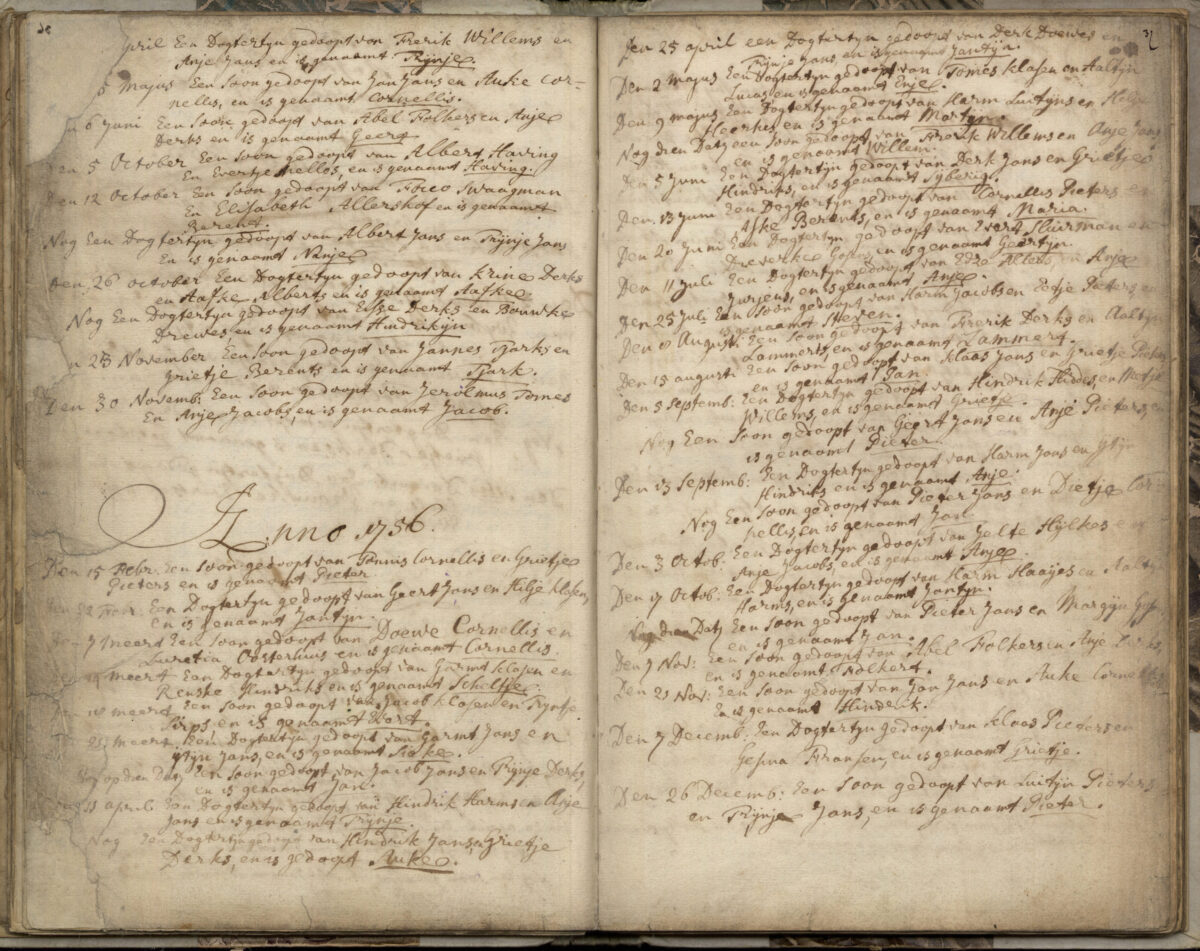 april Een Dogtertyn gedoopt van Frerik Willems en
Anje Jans en is genaamt Trijnje
5 majus Een soon gedoopt van Jan Jans en Auke Cor-
nellis, en is genaamt Cornellis.
6 Juni Een soon gedoopt van Abel Folkers en Anje
Derks en is genaamt Geert
den 5 October Een soon gedoopt van Albert Having
En Evertje nellos, en is genaamt Having.
Den 12 October Een soon gedoopt van Focco Swaagman
En Elisabeth Allershof en is genaamt
Berent.
Nog Een Dogtertyn gedoopt van Albert Jans en Trijnje Jans
En is genaamt Nanje
den 26 october Een Dogtertyn gedoopt van Krine Derks
en Aafke Alberts en is genaamt Aafke
Nog Een Dogtertyn gedoopt van Esse Derks en Bouwke
Drewes en is genaamt Hindrikijn
23 November Een soon gedoopt van Jannes Tjarks en
Grietje Berents en is genaamt Tjark.
Den 30 Novemb: Een soon gedoopt van Jerolmus Tomes
En Anje Jacobs, en is genaamt Jacob.
Anno 1756.
Den 15 Febr: Een soon gedoopt van Tunnis Cornellis en Grietje
Pieters en is genaamt Pieter
22 Febr: Een Dogtertyn gedoopt van Geert Jans en Hilje Klasen,
en is genaamt Jantijn.
7 meert Een soon gedoopt van Doewe Cornellis en
Luretia Oosterhuis en is genaamt Cornellis.
14 meert Een Dogtertyn gedoopt van Jarmt Klasen en
Renske Hindriks en is genaamt Scheltje.
meert Een soon gedoopt van Jacob Klasen en Tryntje
en is genaamt Evert.
21 meert Een Dogtertyn gedoopt van Harmt Jans en
Ytyn Jans, en is genaamt Sieke
Nog op dien Dato Een soon gedoopt van Jacob Jans en Trijnje Derks,
en is genaamt Jan.
11 april Een Dogtertyn gedoopt van Hindrik Harms en Anje
Jans en is genaamt Trijnje.
Nog Een Dogtertyn gedoopt van Hindrik Jans en Grietje
Derks, en is gedoopt Auke.
37
Den 25 april een Dogtertyn gedoopt van Derk Doewes en
Trijnje Jans, en is genaamt Jantijn.
Den 2 Majus Een Dogtertyn gedoopt van Tomes Klasen en Aaltijn
Lucas en is genaamt Enje.
Den 9 majus Een Dogtertyn gedoopt van Harm Luitijns en Hilje
Heerkes en is genaamt Martijn.
Nog dien Dato een soon gedoopt van Frerik Willems en Anje Jans
en is genaamt Willem.
Den 5 Juni Een Dogtertyn gedoopt van Derk Jans en Grietje
Hindriks, en is genaamt Syberig.
Den 13 Juni Een Dogtertyn gedoopt van Cornellis Pieters en
Aske Berents, en is genaamt Maria.
Den 20 Juni Een Dogtertyn gedoopt van Evert Sluirman en
Dieverke en is genaamt Geertijn.
Den 11 Juli Een Dogtertyn gedoopt van Edze Alles, en Anje
Jurjens, en is genaamt Anje.
Den 25 Juli Een soon gedoopt van Harm Jacobs en Eetje Pieters en
is genaamt Steven.
Den 8 August: Een soon gedoopt van Frerik Derks en Aaltijn
Lammerts en is genaamt Lammert.
Den 15 augusti Een soon gedoopt van Klaas Jans en Grietje Pieters
en is genaamt Jan.
Den 5 Septemb: Een Dogtertyn gedoopt van Hindrik Fiddes en Metje
Willems, en is genaamt Grietje.
Nog Een soon gedoopt van Geert Jans en Anje Pieters, en
is genaamt Pieter.
Den 13 Septemb: Een Dogtertyn gedoopt van Harm Jans en Ytijn
Hindriks en is genaamt Anje.
Nog Een soon gedoopt van Pieter Jans en Dietje Cor-
nellis, en is genaamt Jan.
Den 3 Octob: Een Dogtertyn gedoopt van Jelte Hylkes en
Anje Jacobs, en is genaamt Anje.
Den 17 Octob: Een Dogtertyn gedoopt van Harm Haayes en Aaltyn
Harms, en is genaamt Jantyn.
Nog dien Dato Een soon gedoopt van Pieter Jans en Margijn
en is genaamt Jan.
Den 7 Nov: Een soon gedoopt van Abel Folkers en Anje Derks,
en is genaamt Folkert.
Den 21 Nov: Een soon gedoopt van Jan Jans en Auke Cornellis
En is genaamt Hinderk.
Den 7 Decemb: Een Dogtertyn gedoopt van Klaas Pieters en
Gesina Fransen, en is genaamt Grietje.
Den 26 Decemb: Een soon gedoopt van Luitijn Pieters
en Trijnje Jans, en is genaamt Pieter.